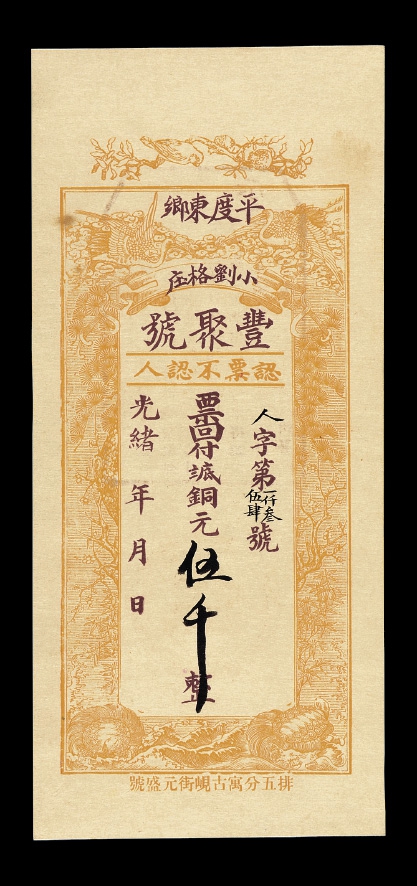 平度東鄉
小劉格庄
豐聚號
認票不認人
人字第一仟叁伍肆號
票回付銅元伍千整
光緒 年 月 日
排五分寓古峴街元盛號